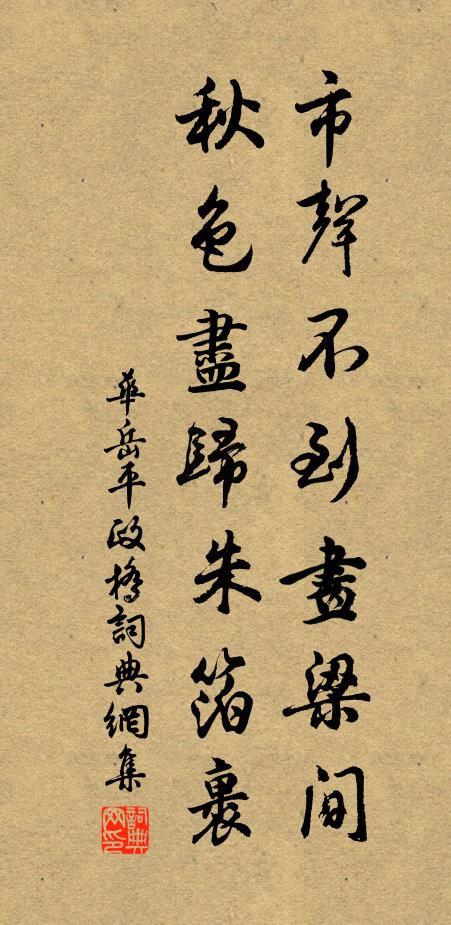 市聲不到畫梁間
秋色盡歸朱箔裏
華岳平政橋詞典網集
詞典网印